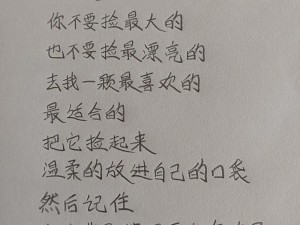 你不要捡最大的
也不要捡最漂亮的
去找一颗最喜欢的
最适合的
把它捡起来
温柔的放进自己的口袋
然后记住